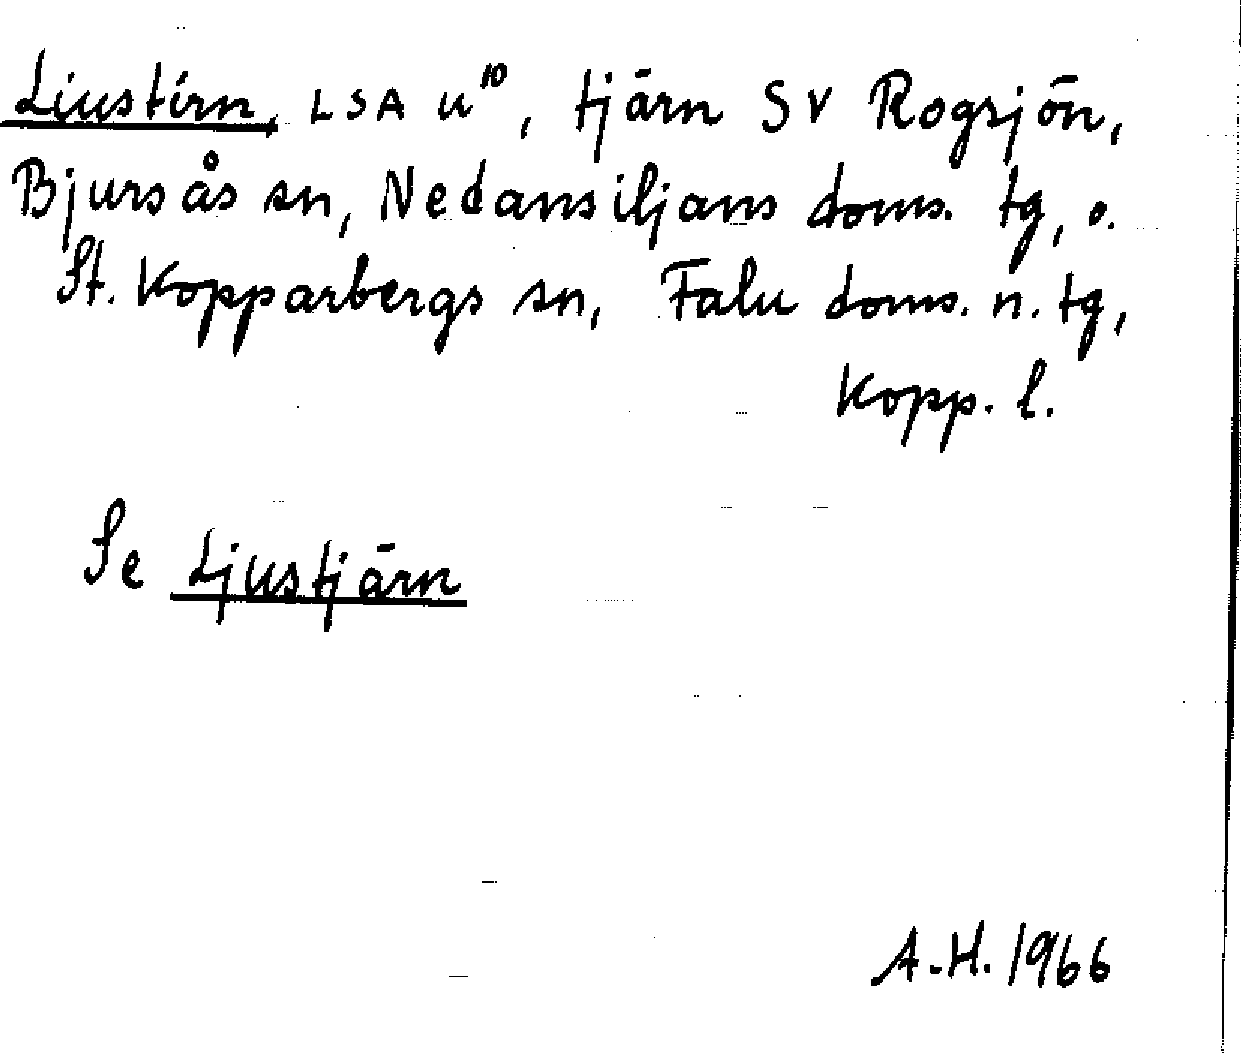 Liustirn, LSA u¹⁰, tjärn SV Rogsjön,
Bjursås sn, Nedansiljans doms. tg, o.
St. Kopparbergs sn, Falu doms. n. tg,
Kopp. l.
Se Ljustjärn
A.H. 1966